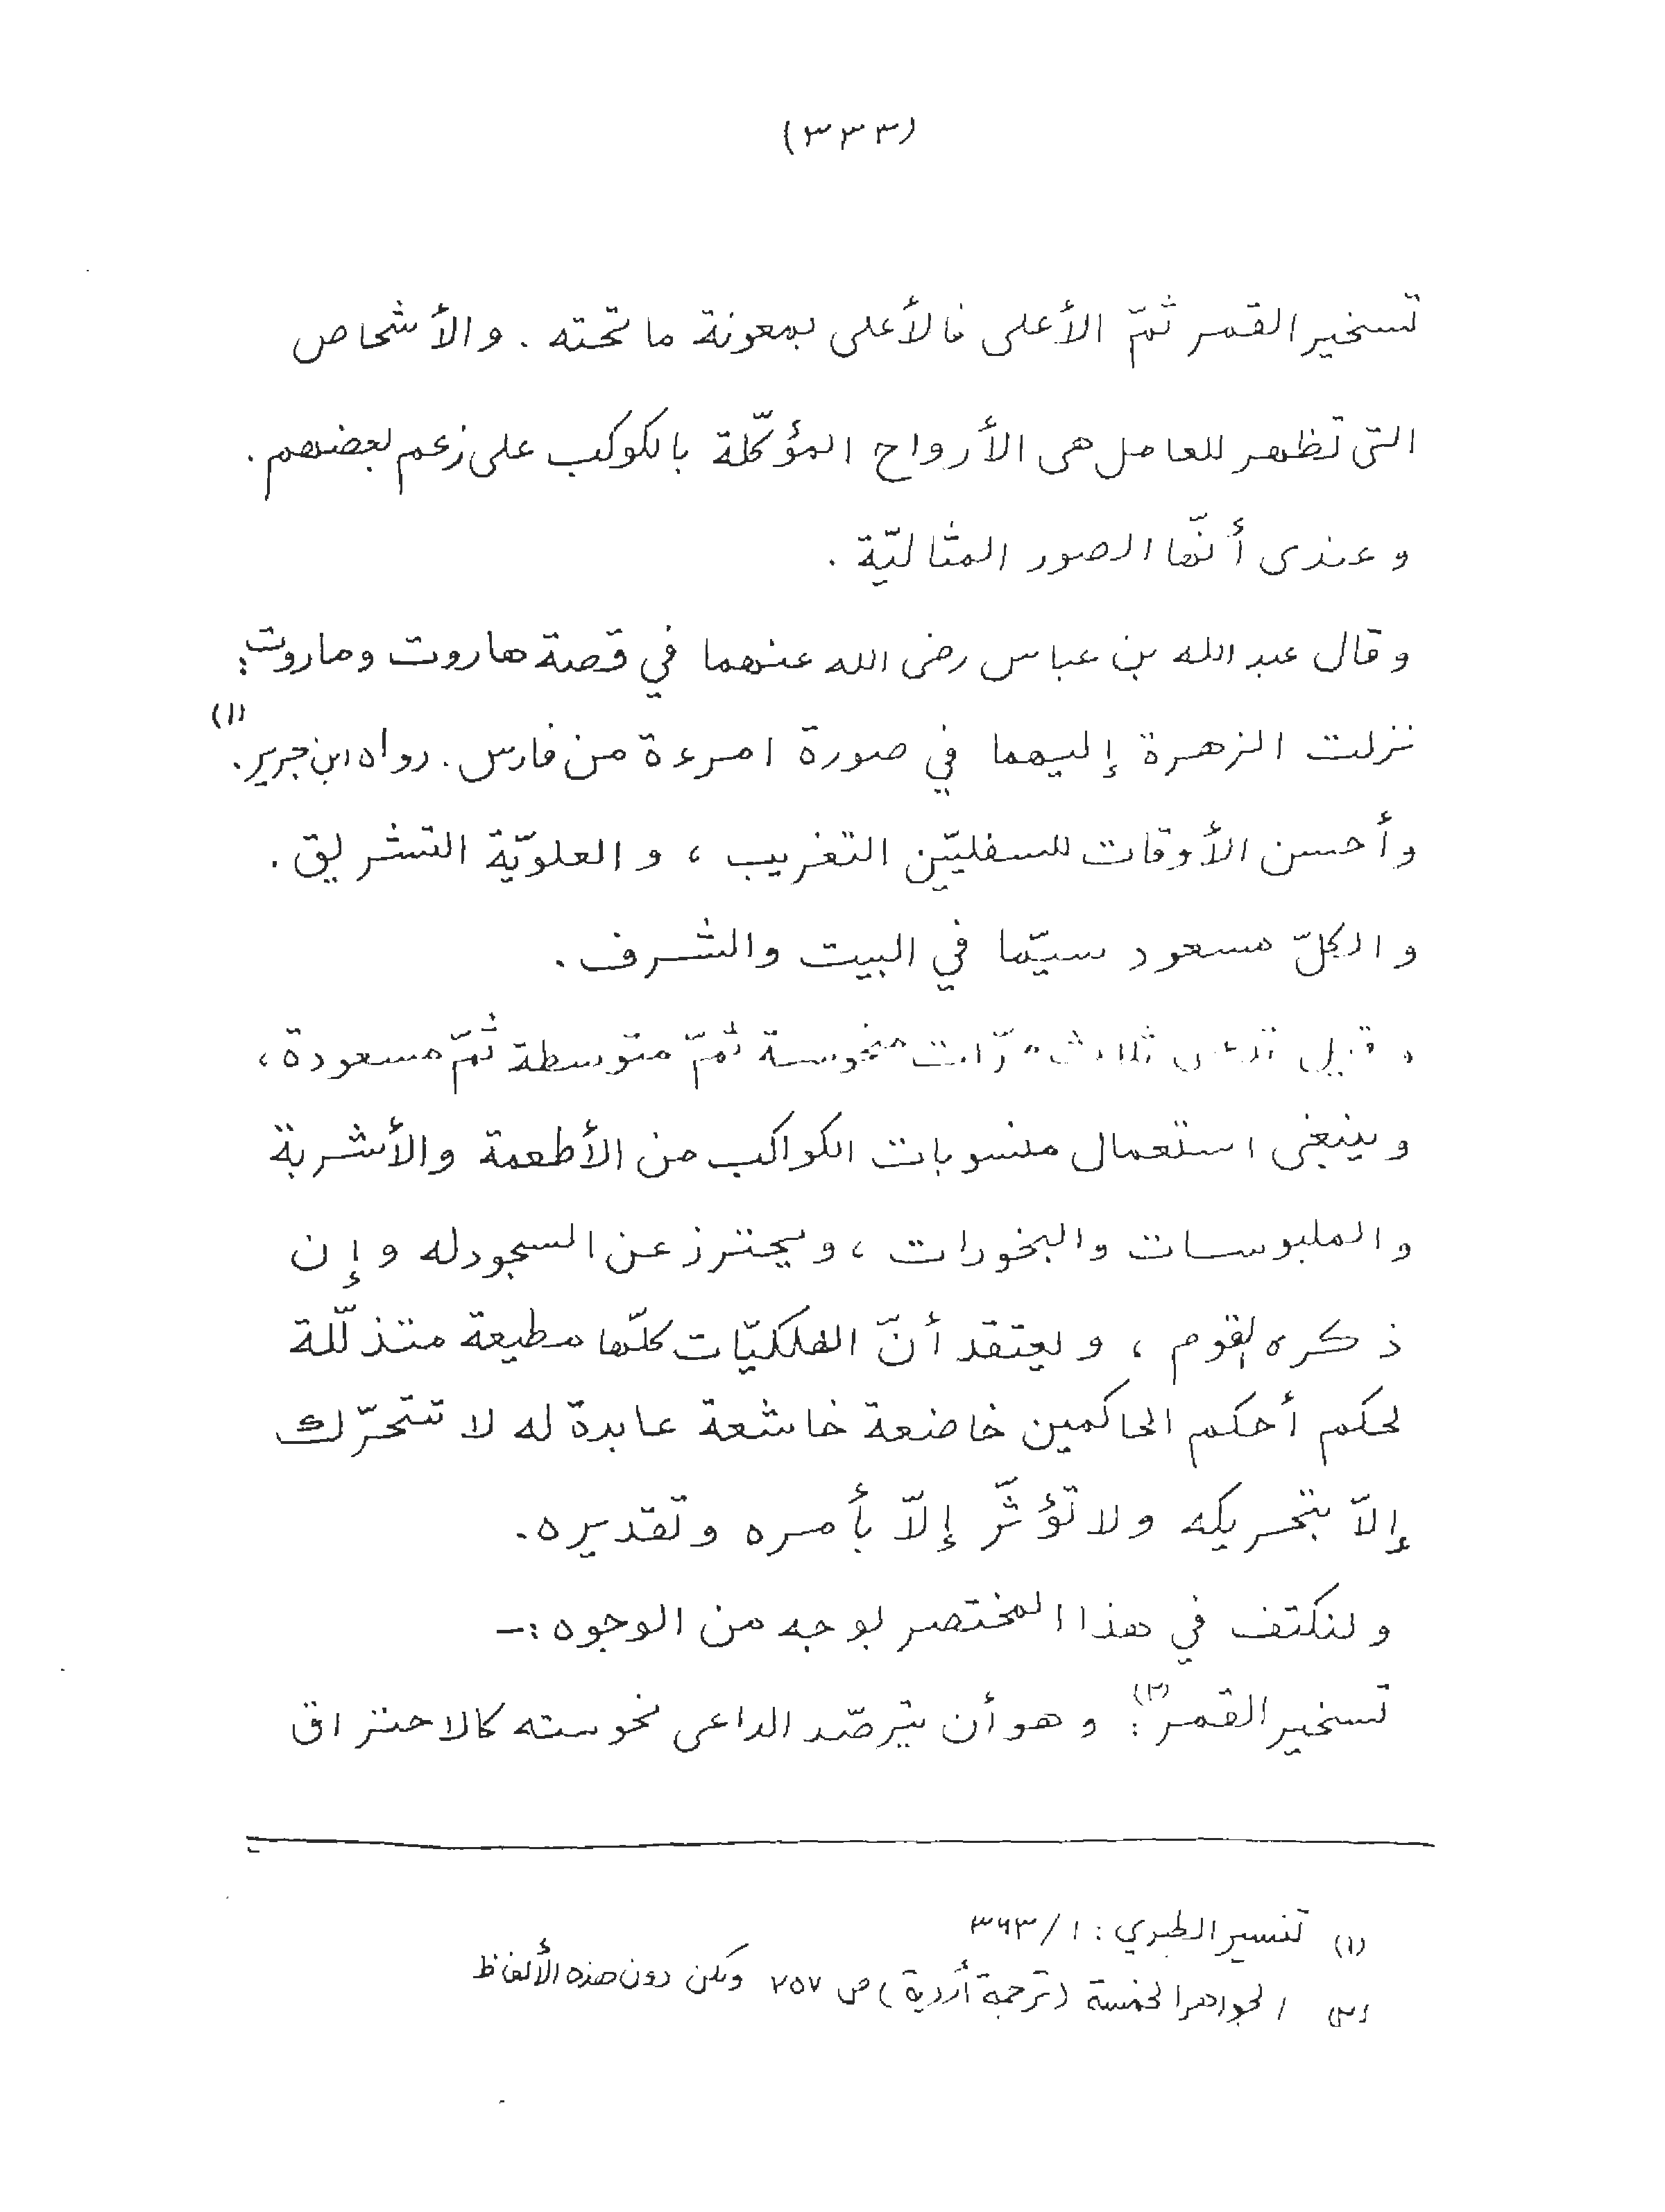 (٣٣٣)
تسخير القمر ثمّ الأعلى فالأعلى بمعونة ما تحته . والأشخاص
التى تظهر للعامل هى الأرواح المؤكّلة بالكوكب على زعم بعضهم .
وعندى أنّها الصور المثاليّة .
وقال عبد الله بن عباس رضى الله عنهما في قصة هاروت وماروت :
نزلت الزهرة إليهما في صورة امرءة من فارس . رواه ابن جرير . (١)
وأحسن الأوقات للسفليّين التغريب ، والعلويّة التشريق .
والكلّ مسعود سيّما في البيت والشرف .
وقيل ثلاث مرّات منحوسة ثمّ متوسطة ثمّ مسعودة ،
وينبغى استعمال منسوبات الكواكب من الأطعمة والأشربة
والملبوسات والبخورات ، ويحترز عن السجود له وإن
ذكره القوم ، ويعتقد أنّ الفلكيّات كلّها مطيعة متذلّلة
لحكم أحكم الحاكمين خاضعة خاشعة عابدة له لا تتحرّك
إلاّ بتحريكه ولا تؤثّر إلاّ بأمره وتقديره .
ولنكتف في هذا المختصر بوجه من الوجوه :-
تسخير القمر (٢) : وهو أن يترصّد الداعى نحوسته كالاحتراق
(١) تفسير الطبري : ١/٣٦٣
(٢) الجواهر الخمسة (ترجمة أردية) ص ٢٥٧ ولكن دون هذه الألفاظ